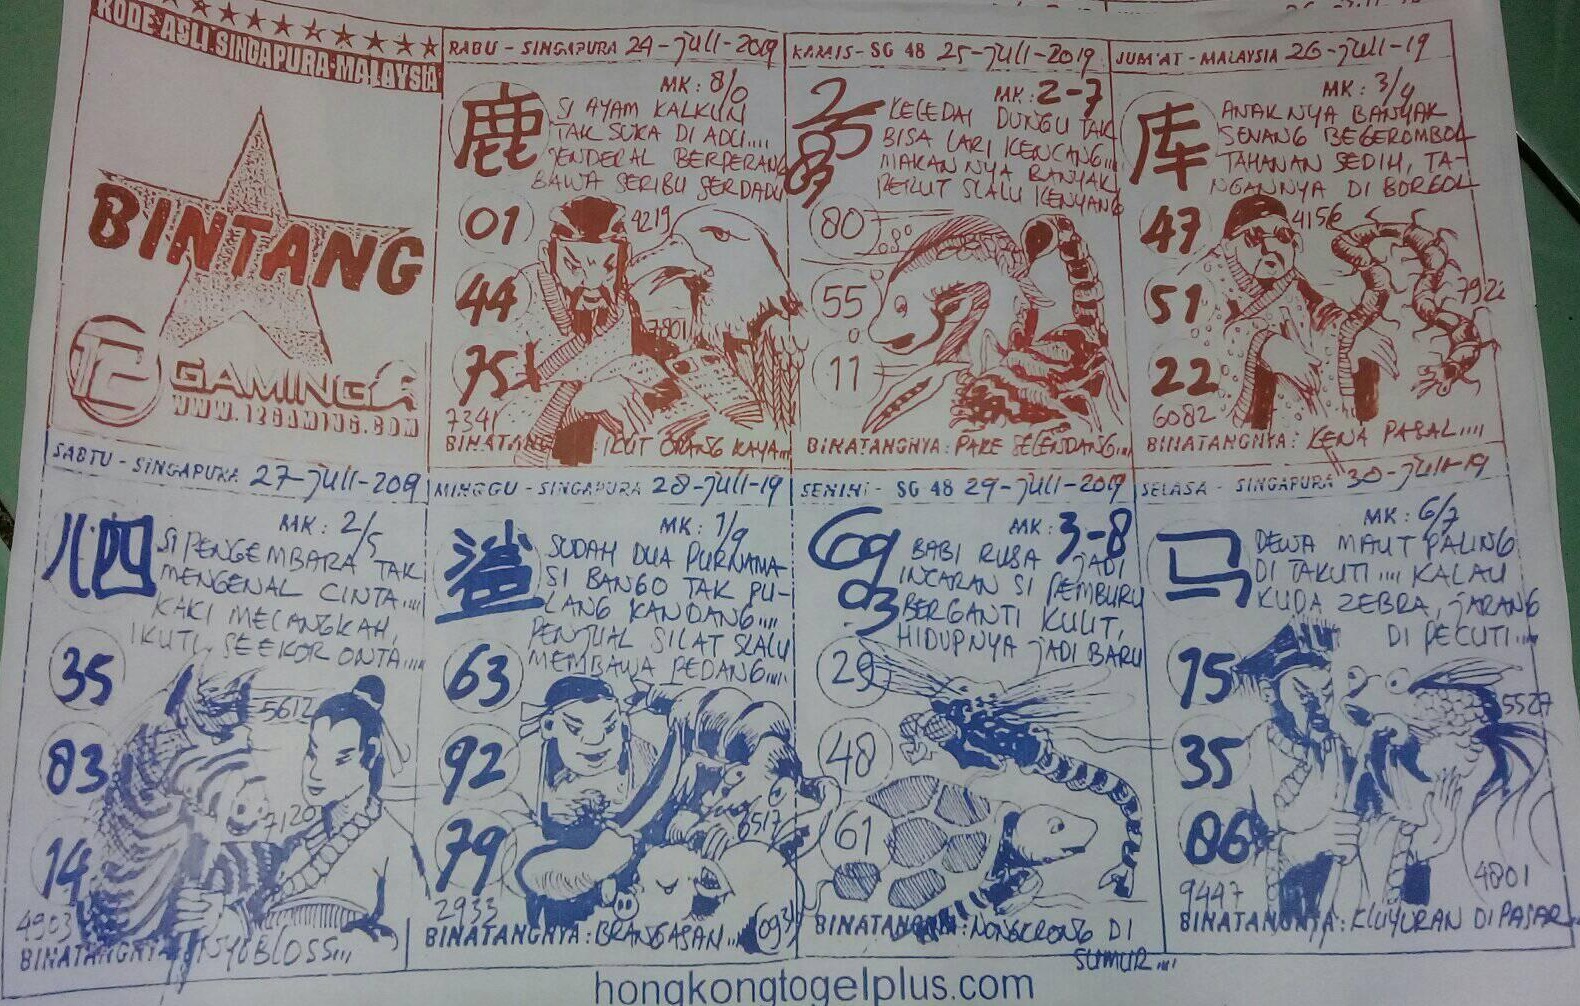 KODE ASLI SINGAPURA-MALAYSIA
BINTANG
12
GAMING
WWW.12GAMING.COM
RABU - SINGAPURA 24-JULI-2019
MK: 8/0
鹿
SI AYAM KALKUN
TAK SUKA DI ADU....
JENDERAL BERPERANG
BAWA SERIBU SERDADU
01
4219
44
7801
75
7341
BINATANG IKUT ORANG KAYA...
KAMIS - SG 48 25-JULI-2019
MK: 2-7
KELEDAI DUNGU TAK
BISA LARI KENCANG....
MAKANNYA BANYAK
PERUT SLALU KENYANG
80
55
11
BINATANGNYA: PAKE SELENDANG...
JUM'AT - MALAYSIA 26-JULI-19
MK: 3/4
库
ANAKNYA BANYAK
SENANG BEGEROMBOL
TAHANAN SEDIH, TA-
NGANNYA DI BORGOL
47
4156
51
22
6082
BINATANGNYA: KENA PASAL....
SABTU - SINGAPURA 27-JULI-2019
MK: 2/5
八四
SI PENGEMBARA TAK
MENGENAL CINTA....
KAKI MELANGKAH,
IKUTI SEEKOR ONTA....
35
5612
83
7120
14
4903
BINATANGNYA NYOBLOSS...
MINGGU - SINGAPURA 28-JULI-19
MK: 1/9
鲨
SUDAH DUA PURNAMA-
SI BANGO TAK PU-
LANG KANDANG....
PENJUAL SILAT SLALU
MEMBAWA PEDANG....
63
92
6517
79
2933
BINATANGNYA: BRANGASAN...
SENIN - SG 48 29-JULI-2019
MK: 3-8
69
03
BABI RUSA JADI
INCARAN SI PEMBURU
BERGANTI KULIT,
HIDUPNYA JADI BARU
29
48
61
BINATANGNYA: NONGKRONG DI
SUMUR....
SELASA - SINGAPURA 30-JULI-19
MK: 6/7
马
DEWA MAUT PALING
DI TAKUTI.... KALAU
KUDA ZEBRA, JARANG
DI PECUTI....
75
5527
35
86
4801
9447
BINATANGNYA: KLUYURAN DI PASAR
hongkongtogelplus.com